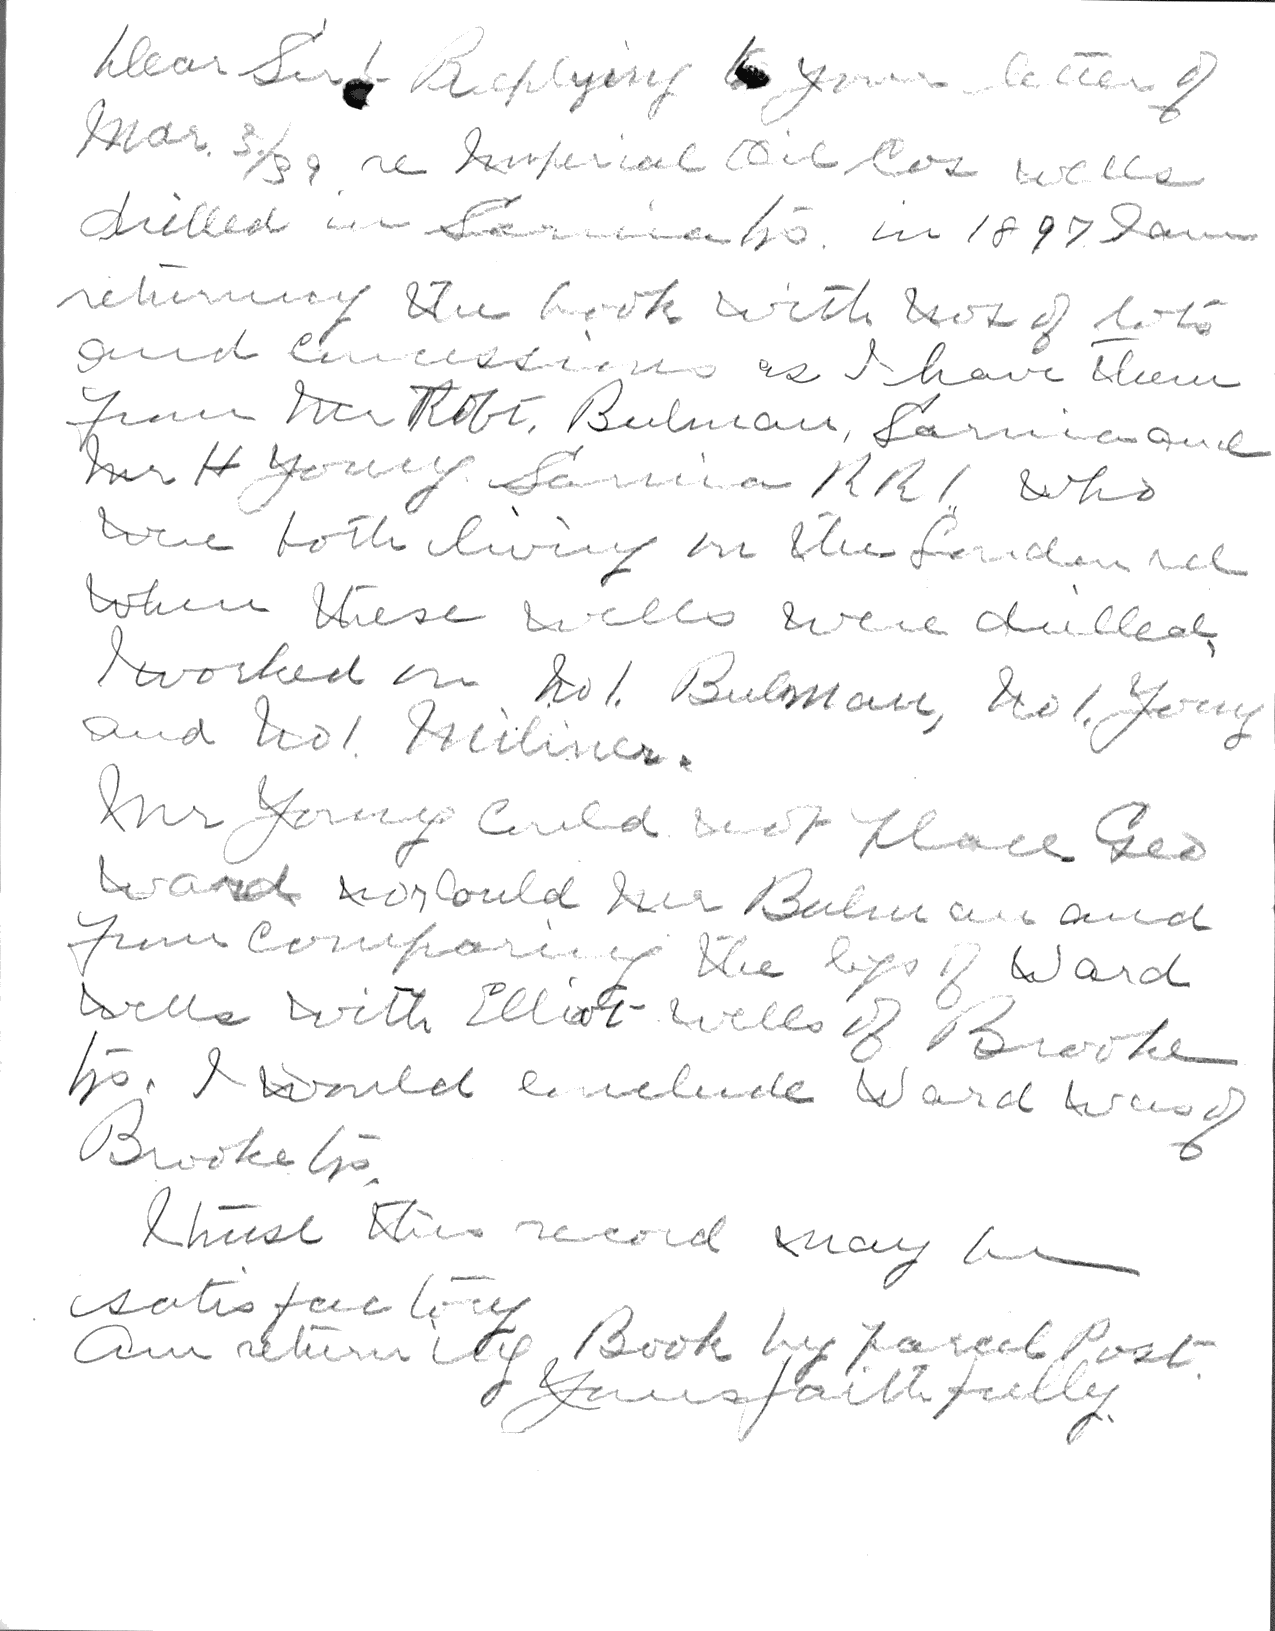 Dear Sir:- Replying to your letter of
Mar. 3/39. re Imperial Oil Cos wells
drilled in Sarnia tp. in 1897 I am
returning the book with nos of lots
and concessions as I have them
from Mr Robt. Bulman, Sarnia and
Mr H Young Sarnia RR1. who
were both living on the London rd
when these wells were drilled,
I worked on No 1. Bulman, No 1. Young
and No 1. Miliner.
Mr Young could not place Geo
Ward nor could Mr Bulman and
from comparing the logs of Ward
wells with Elliot wells of Brooke
tp. I would conclude Ward was of
Brooke tp.
I trust this record may be
satisfactory
Am returning Book by parcel Post.
Yours faithfully.